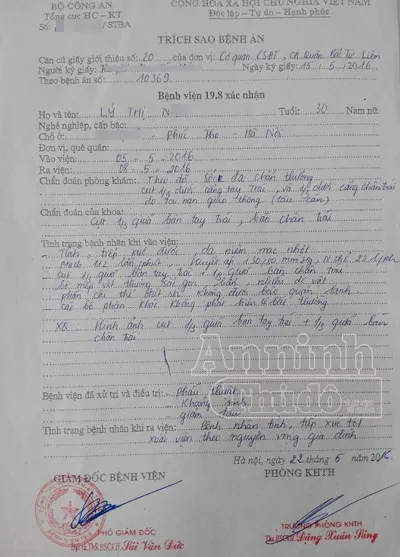 BỘ CÔNG AN
Tổng cục HC - KT
Số: /STBA
CỘNG HÒA XÃ HỘI CHỦ NGHĨA VIỆT NAM
Độc lập - Tự do - Hạnh phúc
TRÍCH SAO BỆNH ÁN
Căn cứ giấy giới thiệu số: 20 của đơn vị: Cơ quan CSĐT, CA Quận Bắc Từ Liêm
Người ký giấy: Ngày ký giấy: 15/5/2016
Theo bệnh án số: 10369
Bệnh viện 19.8 xác nhận
Họ và tên: LÝ THỊ N Tuổi: 30 Nam nữ.
Nghề nghiệp, cấp bậc:
Chỗ ở: Phúc Thọ - Hà Nội
Đơn vị, quê quán:
Vào viện: 05 - 5 - 2016
Ra viện: 08 - 5 - 2016
Chẩn đoán phòng khám: Theo dõi sốc đa chấn thương
cụt 1/3 dưới cẳng tay trái, và 1/3 dưới cẳng chân trái
do tai nạn giao thông (tàu cán)
Chẩn đoán của khoa:
Cụt 1/3 quá bàn tay trái, bàn chân trái
Tình trạng bệnh nhân khi vào viện:
- Tỉnh, tiếp xúc được, da niêm mạc nhợt
Mạch lần/phút, huyết áp 130/80 mmHg, 22 l/ph
cụt 1/3 quá bàn tay trái + 1/3 quá bàn chân trái
bề mặt vết thương sắc gọn, nhiều dị vật
phần chi thể đứt rời không được bảo quản lạnh
các bộ phận khác không phát hiện gì bất thường
XQ. Hình ảnh cụt 1/3 quá bàn tay trái + 1/3 quá bàn
chân trái
Anninh
Thủ đô
Bệnh viện đã xử trí và điều trị: - Phẫu thuật
- Kháng sinh
- giảm đau
Tình trạng bệnh nhân khi ra viện: Bệnh nhân tỉnh, tiếp xúc tốt
xuất viện theo nguyện vọng gia đình
Hà nội, ngày 22 tháng 6 năm 2016
GIÁM ĐỐC BỆNH VIỆN
PHÒNG KHTH
PHÓ GIÁM ĐỐC
BSCKII Bùi Văn Đức
TRƯỞNG PHÒNG KHTH
Ths.BSCKII Đặng Xuân Sáng